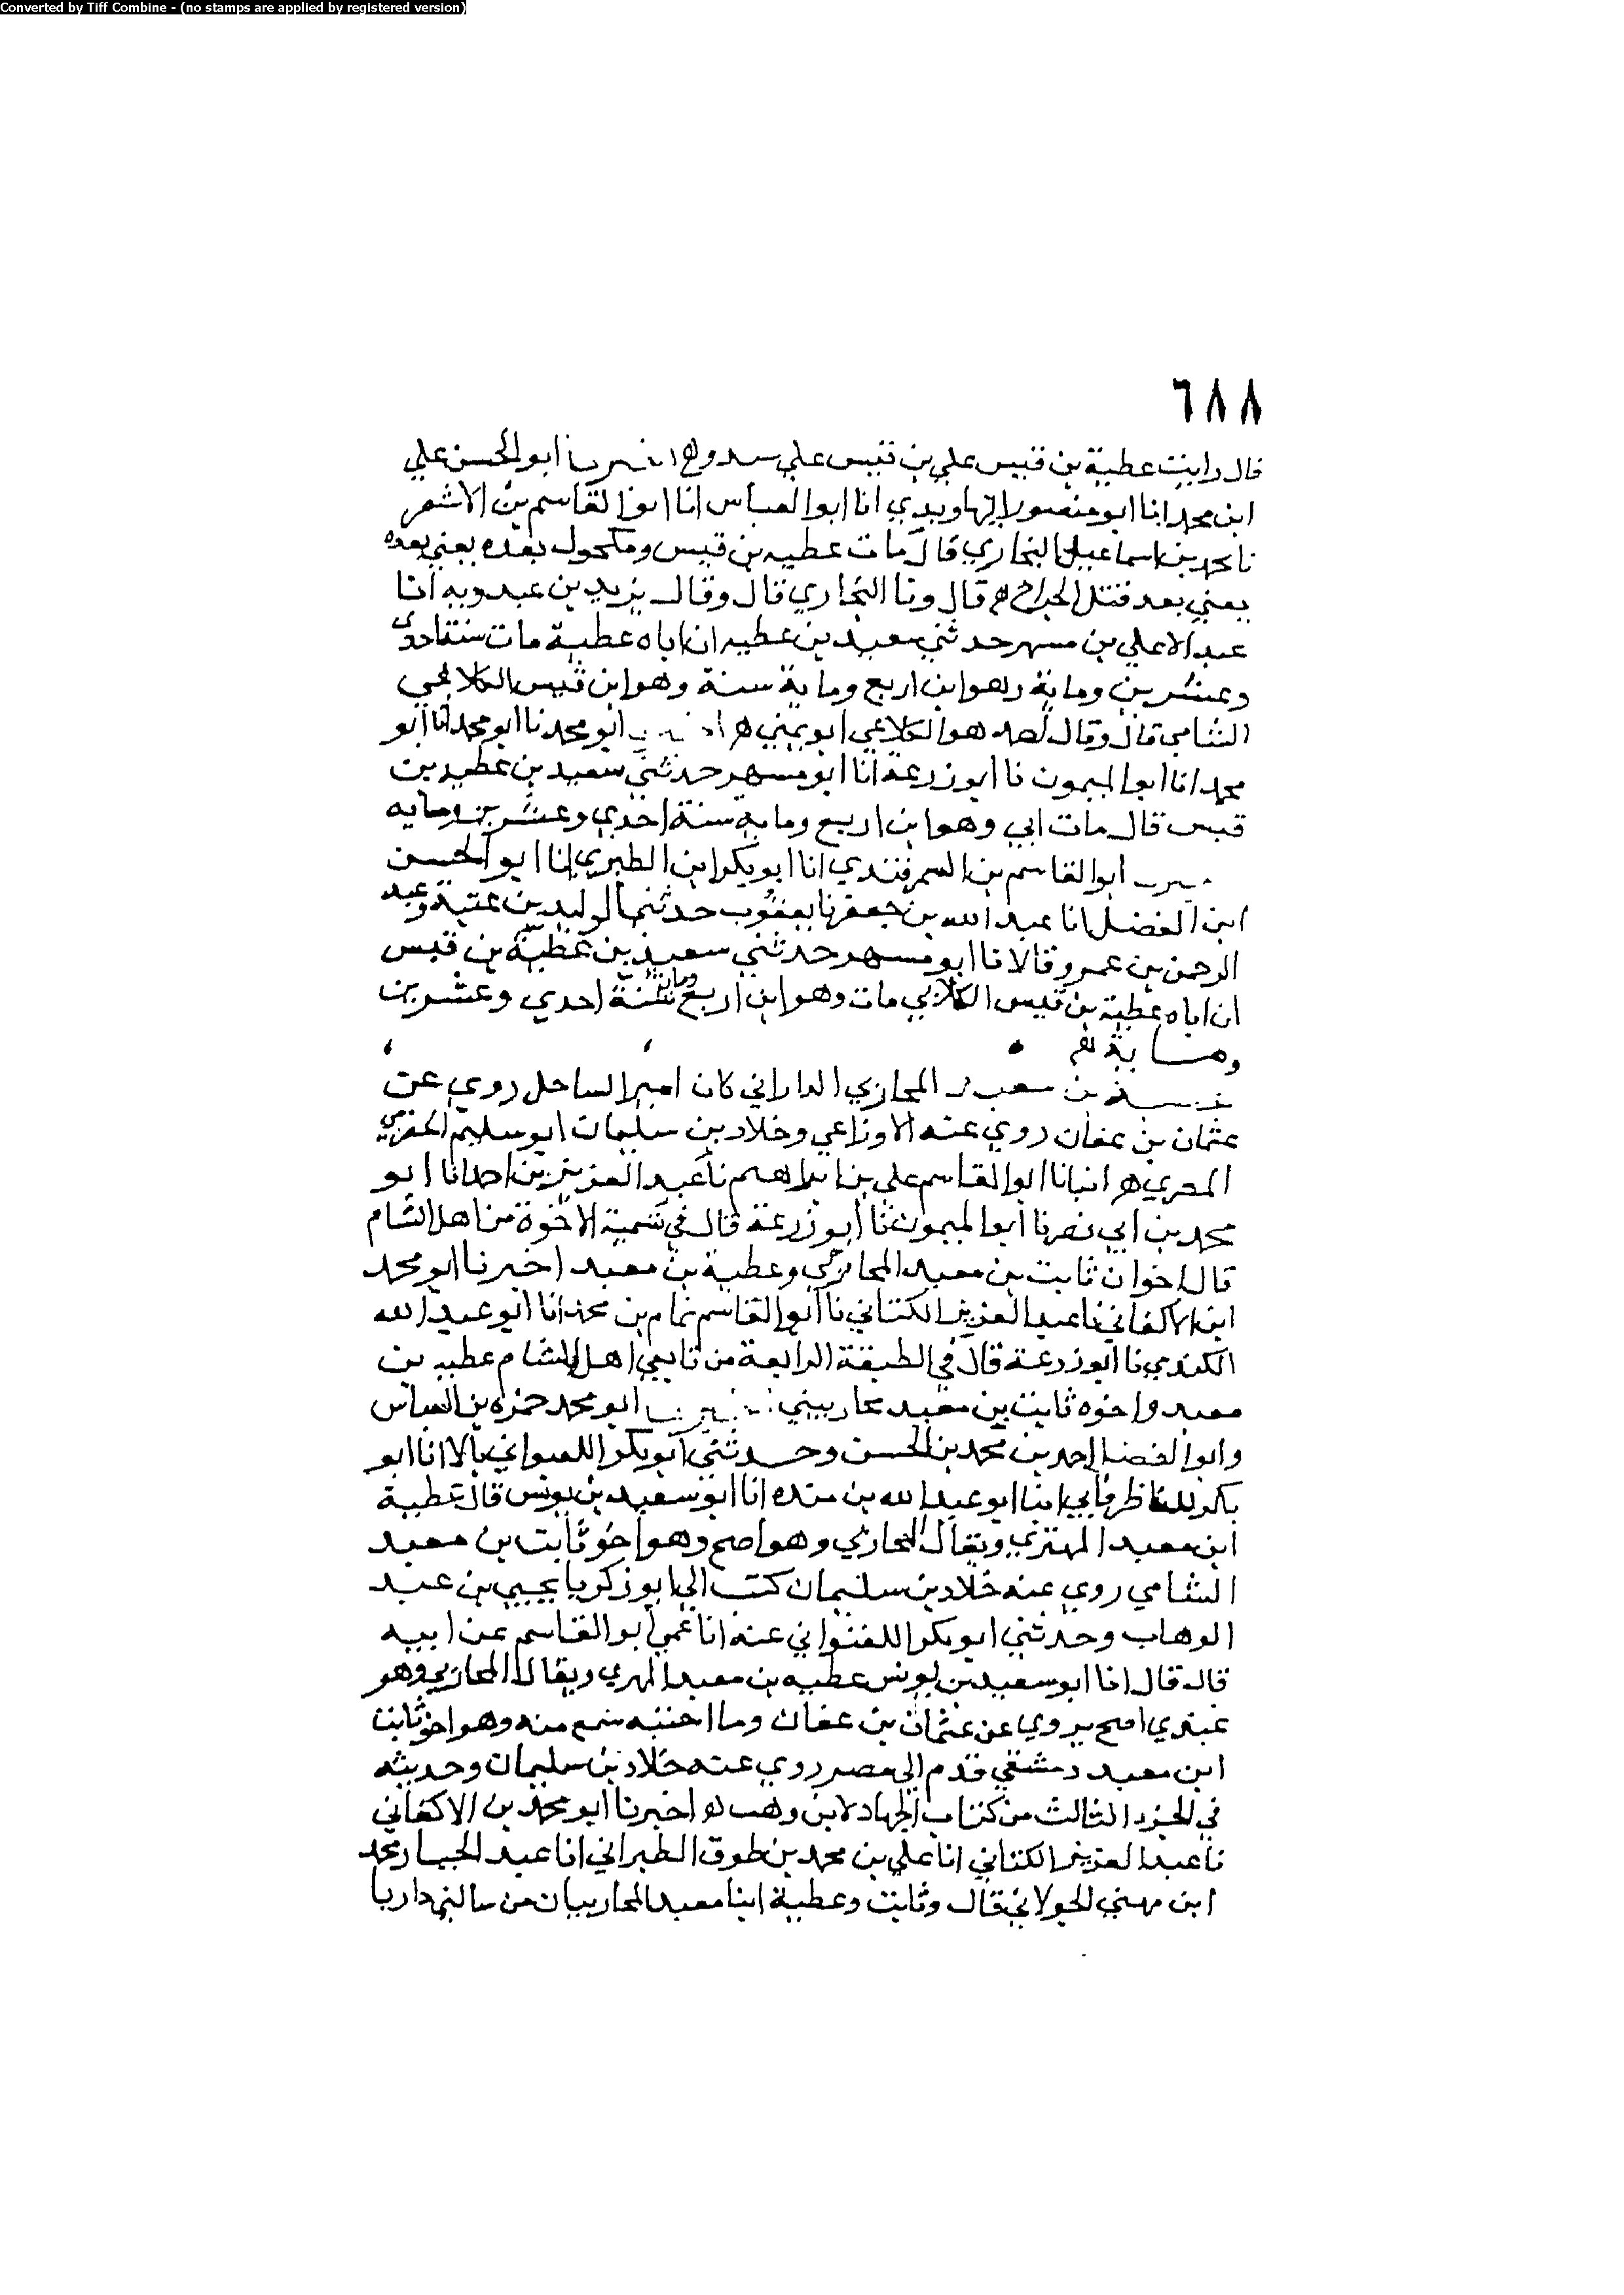 Converted by Tiff Combine - (no stamps are applied by registered version)
٦٨٨
قال رايت عطية بن قيس علي بن قيس علي ابو الحسن علي
ابن محمد انا ابو منصور النهاوندي انا ابو العباس انا ابو القاسم بن الاشقر
نا محمد بن اسماعيل البخاري قال مات عطيه بن قيس ومكحول بعده يعني بعده
يعني بعد قتل الجراح ه قال ونا البخاري قال وقال يزيد بن عبد ربه انا
عبد الاعلي بن مسهر حدثني سعيد بن عطيه ان اباه عطية مات سنة احدى
وعشرين وماية وهو ابن اربع وماية سنة وهو ابن قيس الكلاعي
الشامي قال وقال هو الكلاعي ابو يحيي ه ابو محمد نا ابو محمد انا ابو
محمد انا ابو الميمون نا ابو زرعة انا ابو مسهر حدثني سعيد بن عطيه بن
قيس قال مات ابي وهو ابن اربع وماية سنة احدي وعشرين ومايه
ابو القاسم بن السمرقندي انا ابو بكر ابن الطبري انا ابو الحسن
ابن الفضل انا عبد الله بن جعفر نا يعقوب حدثنا الوليد بن عتبة وعبد
الرحمن بن عمرو قالا نا ابو مسهر حدثني سعيد بن عطية بن قيس
ان اباه عطية بن قيس الكلابي مات وهو ابن اربع وماية سنة احدي وعشرين
وماية
بن معبد المحاربي الداراني كان امير الساحل روي عن
عثمان بن عفان روي عنه الاوزاعي وخلاد بن سليمان ابو سليم الحضرمي
المصري ه انبانا ابو القاسم علي بن ابراهيم نا عبد العزيز بن احمد انا ابو
محمد بن ابي نصر نا ابو الميمون نا ابو زرعة قال في تسمية الاخوة من اهل الشام
قال اخوان ثابت بن معبد المحاربي وعطية بن معبد اخبرنا ابو محمد
ابن الاكفاني نا عبد العزيز الكتاني نا ابو القاسم تمام بن محمد انا ابو عبد الله
الكندي نا ابو زرعة قال في الطبقة الرابعة من تابعي اهل الشام عطيه بن
معبد واخوه ثابت بن معبد محاربيني ابو محمد حمزه بن العباس
وابو الفضل احمد بن محمد بن الحسن وحدثني ابو بكر اللفتواني قالا انا ابو
بكر الباطرقاني انا ابو عبد الله بن منده انا ابو سعيد بن يونس قال عطية
ابن معبد المهري ويقال المحاربي وهو اصح وهو اخو ثابت بن معبد
الشامي روي عنه خلاد بن سليمان كتب الي ابو زكريا يحيي بن عبد
الوهاب وحدثني ابو بكر اللفتواني عنه انا عمي ابو القاسم عن ابيه
قال قال انا ابو سعيد بن يونس عطيه بن معبد المهري ويقال المحاربي وهو
عندي اصح يروي عن عثمان بن عفان وما احسبه سمع منه وهو اخو ثابت
ابن معبد دمشقي قدم الي مصر روي عنه خلاد بن سليمان وحديثه
في الجزء الثالث من كتاب الجهاد لابن وهب اخبرنا ابو محمد بن الاكفاني
نا عبد العزيز الكتاني انا علي بن محمد بن طوق الطبراني انا عبد الجبار محمد
ابن مهني الخولاني قال وثابت وعطية ابنا معبد المحاربيان من ساكني داريا